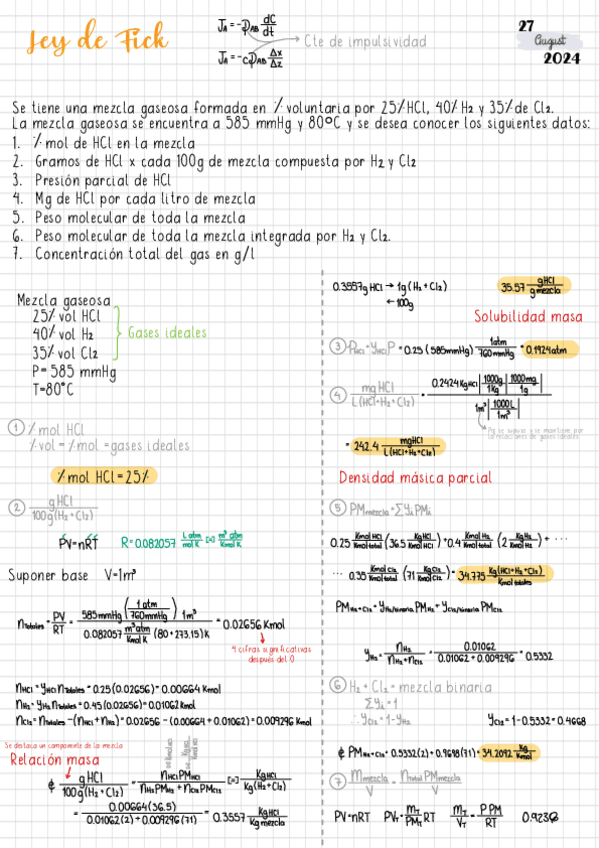 Ley de Fick
J_A = -D_AB dC/dt
J_A = -cD_AB Δx/Δz
Cte de impulsividad
27
August
2024
Se tiene una mezcla gaseosa formada en % voluntaria por 25% HCl, 40% H₂ y 35% de Cl₂.
La mezcla gaseosa se encuentra a 585 mmHg y 80°C y se desea conocer los siguientes datos:
1. % mol de HCl en la mezcla
2. Gramos de HCl x cada 100g de mezcla compuesta por H₂ y Cl₂
3. Presión parcial de HCl
4. Mg de HCl por cada litro de mezcla
5. Peso molecular de toda la mezcla
6. Peso molecular de toda la mezcla integrada por H₂ y Cl₂.
7. Concentración total del gas en g/l
Mezcla gaseosa
25% vol HCl
40% vol H₂
35% vol Cl₂
Gases ideales
P = 585 mmHg
T = 80°C
① % mol HCl
% vol = % mol = gases ideales
% mol HCl = 25%
② gHCl / 100g(H₂ + Cl₂)
PV = nRT
R = 0.082057 L atm / mol K [=] m³ atm / Kmol K
Suponer base V = 1m³
n totales = PV / RT = 585 mmHg (1 atm / 760 mmHg) 1m³ / 0.082057 m³ atm / Kmol K (80 + 273.15) K = 0.02656 Kmol
4 cifras significativas
después del 0
nHCl = yHCl n totales = 0.25 (0.02656) = 0.00664 Kmol
nH₂ = yH₂ n totales = 0.45 (0.02656) = 0.01062 Kmol
nCl₂ = n totales - (nHCl + nH₂) = 0.02656 - (0.00664 + 0.01062) = 0.009296 Kmol
Se destaca un componente de la mezcla
Relación masa
¢ gHCl / 100g(H₂ + Cl₂) = nHCl PMHCl / nH₂ PMH₂ + nCl₂ PMCl₂ [=] KgHCl / Kg(H₂ + Cl₂)
= 0.00664 (36.5) / 0.01062 (2) + 0.009296 (71) = 0.3557 KgHCl / Kg mezcla
0.3557g HCl → 1g (H₂ + Cl₂)
← 100g
35.57 gHCl / g mezcla
Solubilidad masa
③ PHCl = yHCl P = 0.25 (585 mmHg) 1 atm / 760 mmHg = 0.1924 atm
④ mg HCl / L(HCl + H₂ + Cl₂) = 0.2424 Kg HCl | 1000g / 1Kg | 1000mg / 1g | / 1m³ | 1000L / 1m³ |
= 242.4 mgHCl / L(HCl + H₂ + Cl₂)
Densidad másica parcial
⑤ PM mezcla = ΣyᵢPMᵢ
0.25 Kmol HCl / Kmol total (36.5 KgHCl / Kmol HCl) + 0.4 Kmol H₂ / Kmol total (2 KgH₂ / Kmol H₂) + ...
... 0.35 Kmol Cl₂ / Kmol total (71 KgCl₂ / Kmol Cl₂) = 34.775 Kg(HCl + H₂ + Cl₂) / Kmol totales
PM H₂ + Cl₂ = yH₂/binaria PMH₂ + yCl₂/binaria PMCl₂
yH₂ = nH₂ / nH₂ + nCl₂ = 0.01062 / 0.01062 + 0.009296 = 0.5332
⑥ H₂ + Cl₂ = mezcla binaria
Σyᵢ = 1
∴ yCl₂ = 1 - yH₂
yCl₂ = 1 - 0.5332 = 0.4668
¢ PM H₂ + Cl₂ = 0.5332 (2) + 0.9698 (71) = 34.2092 Kg / Kmol
⑦ m mezcla / V = n total PM mezcla / V
PV = nRT
PV_T = m_T / PM_T RT
m_T / V_T = P PM / RT